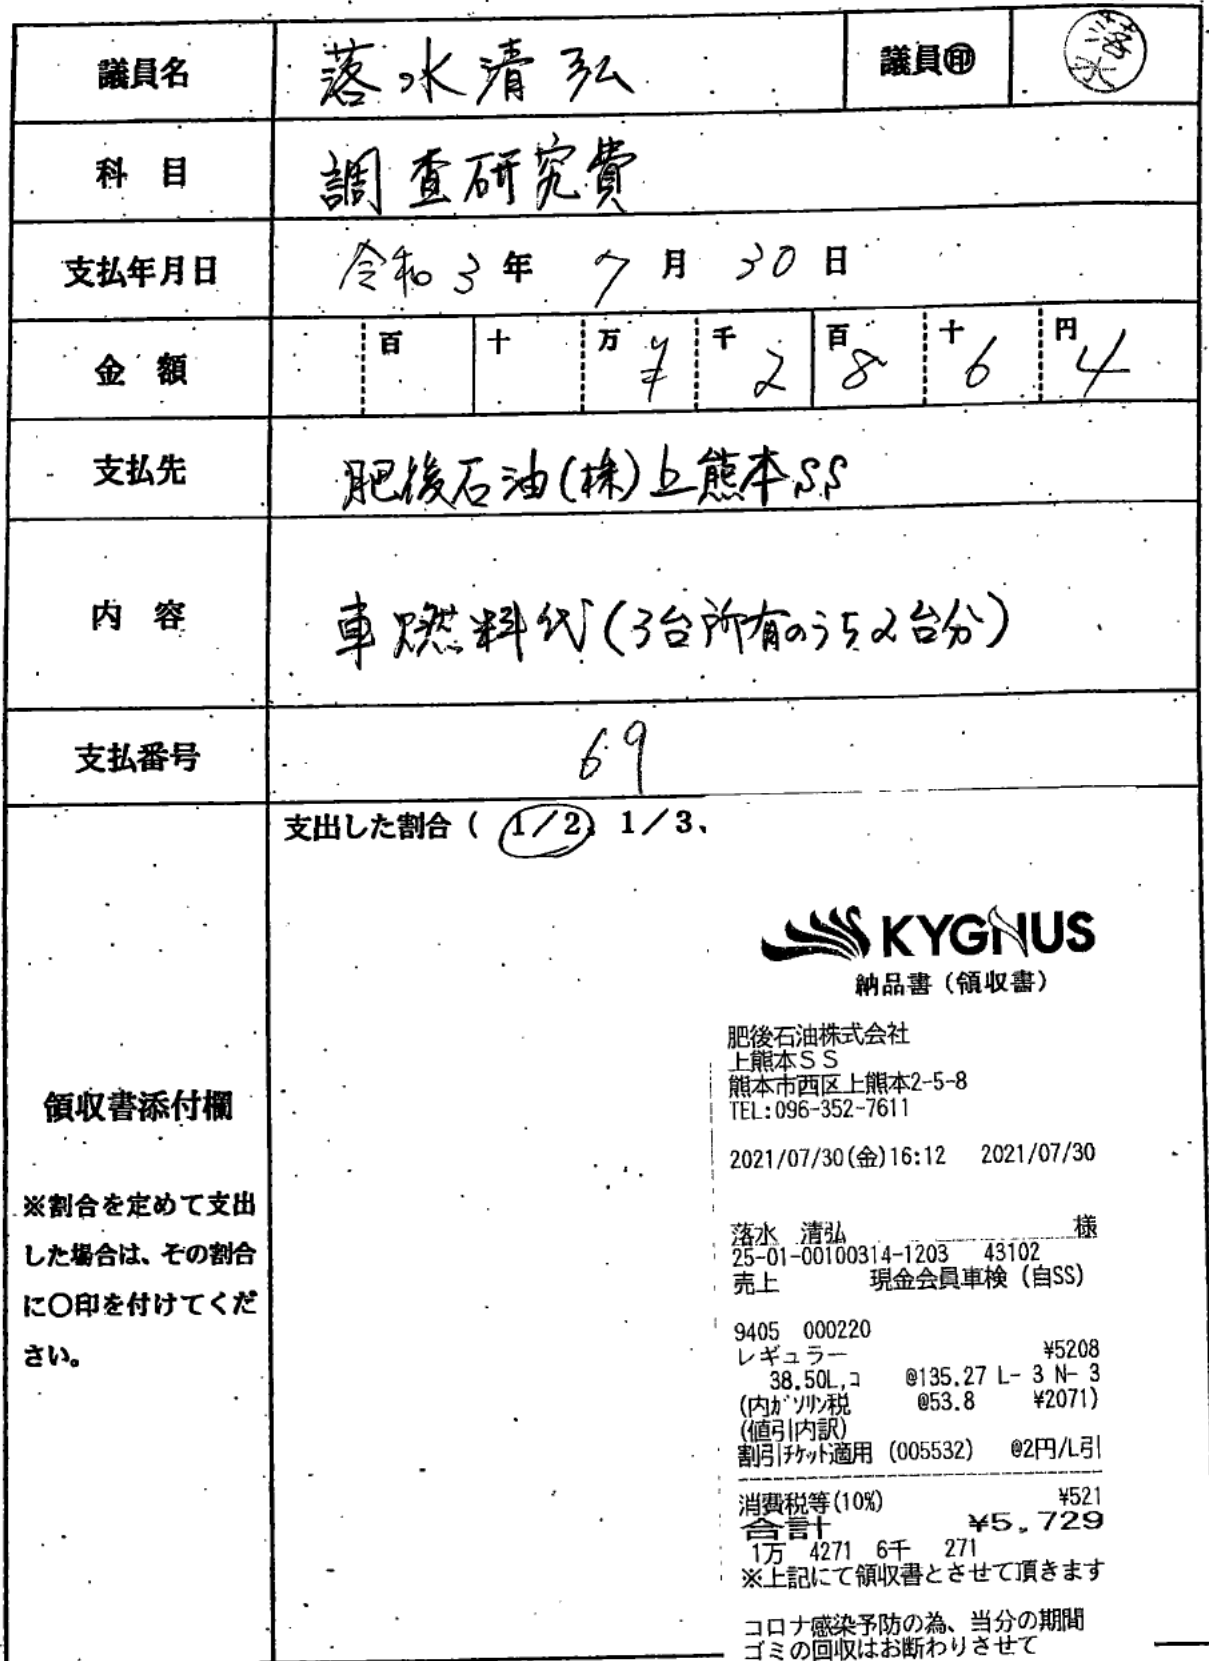 議員名 落水清弘 議員㊞ 落水
科目 調査研究費
支払年月日 令和3年 7月 30日
金額 百 十 万 ¥ 千 2 百 8 十 6 円 4
支払先 肥後石油(株)上熊本SS
内容 車燃料代(3台所有のうち2台分)
支払番号 69
支出した割合( 1/2、1/3、
KYGNUS
納品書(領収書)
肥後石油株式会社
上熊本SS
熊本市西区上熊本2-5-8
TEL:096-352-7611
2021/07/30(金)16:12 2021/07/30
落水 清弘 様
25-01-00100314-1203 43102
売上 現金会員車検(自SS)
9405 000220
レギュラー ¥5208
38.50L,コ @135.27 L- 3 N- 3
(内ガソリン税 @53.8 ¥2071)
(値引内訳)
割引チケット適用(005532) @2円/L引
消費税等(10%) ¥521
合計 ¥5,729
1万 4271 6千 271
※上記にて領収書とさせて頂きます
コロナ感染予防の為、当分の期間
ゴミの回収はお断わりさせて
領収書添付欄
※割合を定めて支出
した場合は、その割合
に〇印を付けてくだ
さい。